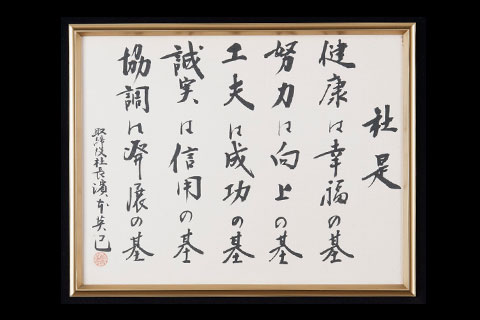 社是
健康は幸福の基
努力は向上の基
工夫は成功の基
誠実は信用の基
協調は発展の基
取締役社長濱本英己